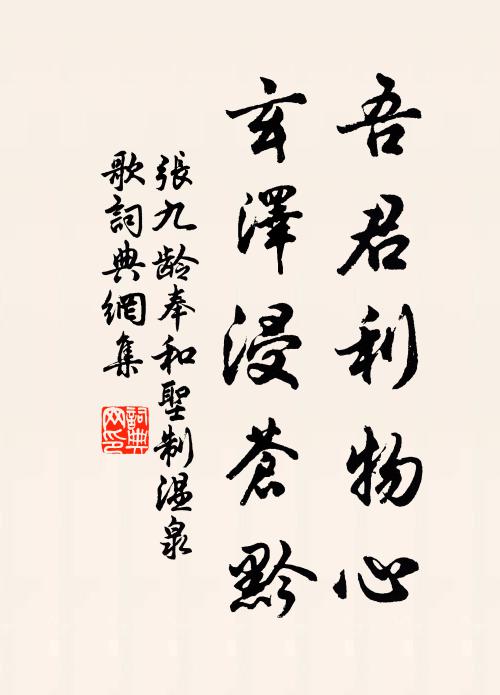 吾君利物心
玄澤浸蒼黔
張九龄奉和聖制温泉
歌詞典網集
詞典
网印